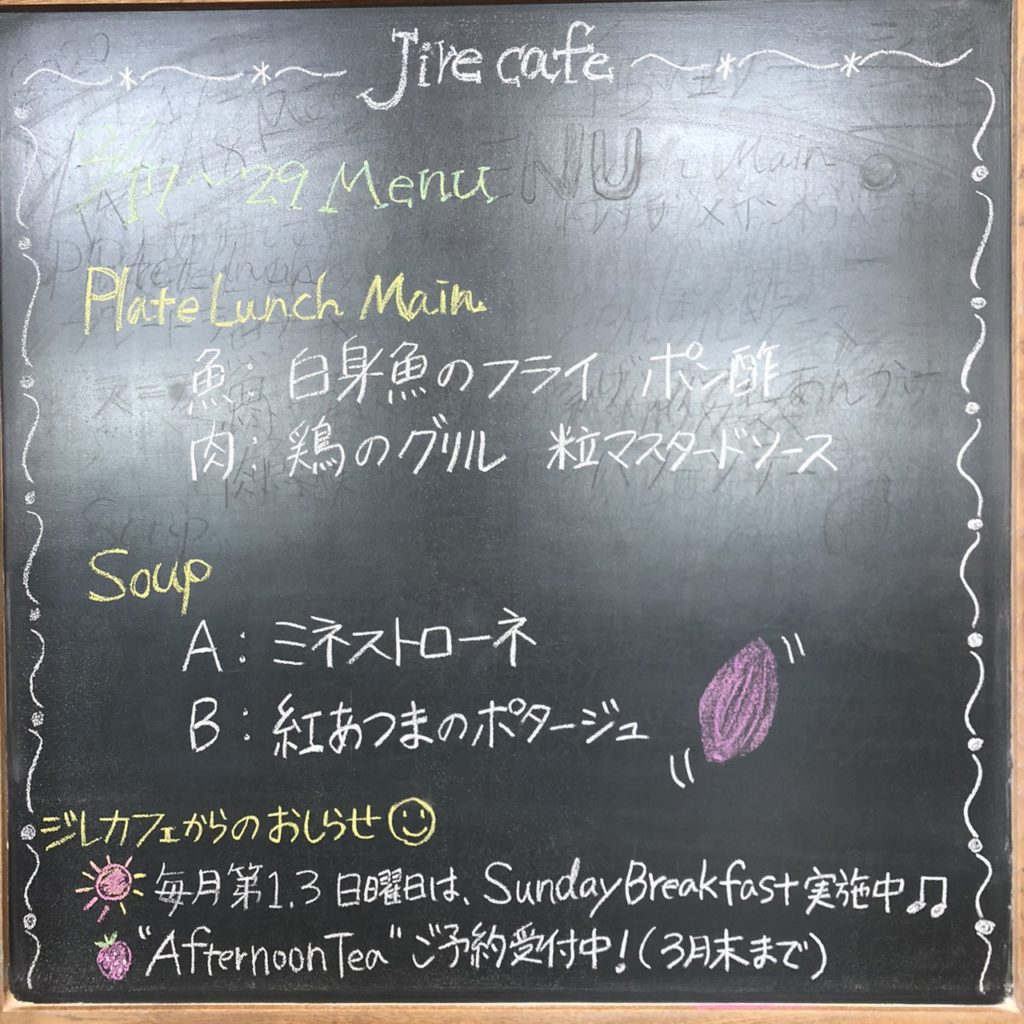 Jire cafe
2/17~29 Menu
Plate Lunch Main
魚: 白身魚のフライ ポン酢
肉: 鶏のグリル 粒マスタードソース
Soup
A: ミネストローネ
B: 紅あつまのポタージュ
ジレカフェからのおしらせ
毎月第1.3日曜日は、SundayBreakfast実施中♫
"AfternoonTea"ご予約受付中!(3月末まで)